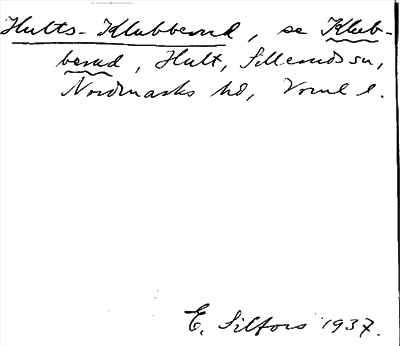 Hults-Klubberud, se Klub-
berud, Hult, Silleruds sn,
Nordmarks hd, Vrml l.
E. Silfors 1937.